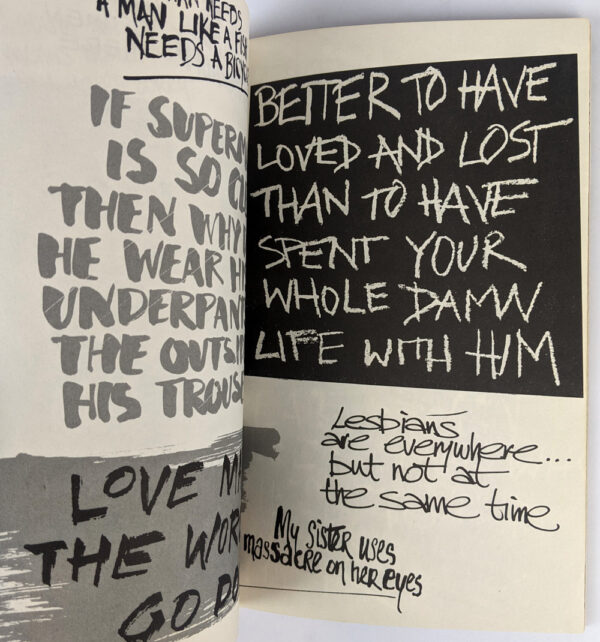 NEEDS
A MAN LIKE A FIS
NEEDS A BICYC
IF SUPERM
IS SO CO
THEN WHY
HE WEAR H
UNDERPANT
THE OUTSI
HIS TROUSE
LOVE M
THE WOR
GO DO
BETTER TO HAVE
LOVED AND LOST
THAN TO HAVE
SPENT YOUR
WHOLE DAMN
LIFE WITH HIM
Lesbians
are everywhere...
but not at
the same time
My sister uses
massacre on her eyes